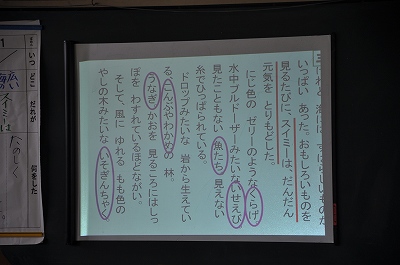 海には すばらしいものが
いっぱい あった。おもしろいものを
見るたびに、スイミーは、だんだん
元気を とりもどした。
にじ色の ゼリーのような くらげ。
水中ブルドーザーみたいな いせえび。
見たこともない 魚たち 見えない
糸でひっぱられている。
ドロップみたいな 岩から生えてい
る、こんぶやわかめの 林。
うなぎ かおを 見るころには しっ
ぽを わすれているほどながい。
そして、風に ゆれる もも色の
やしの木みたいな いそぎんちゃく
いつ
どこ
だれが
スイミーは
何をした
たのしく